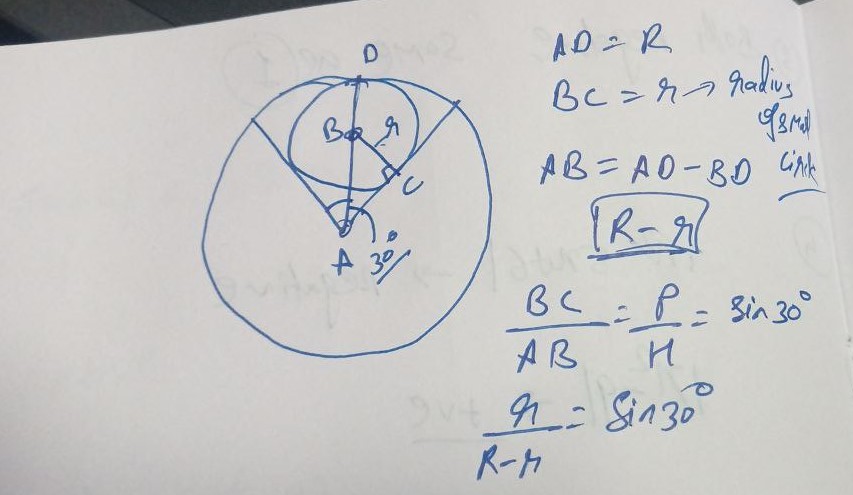 D
B
r
C
A 30°
AD = R
BC = r → radius
of small
circle
AB = AD - BD
R - r
BC/AB = P/H = Sin 30°
r/R-r = Sin 30°